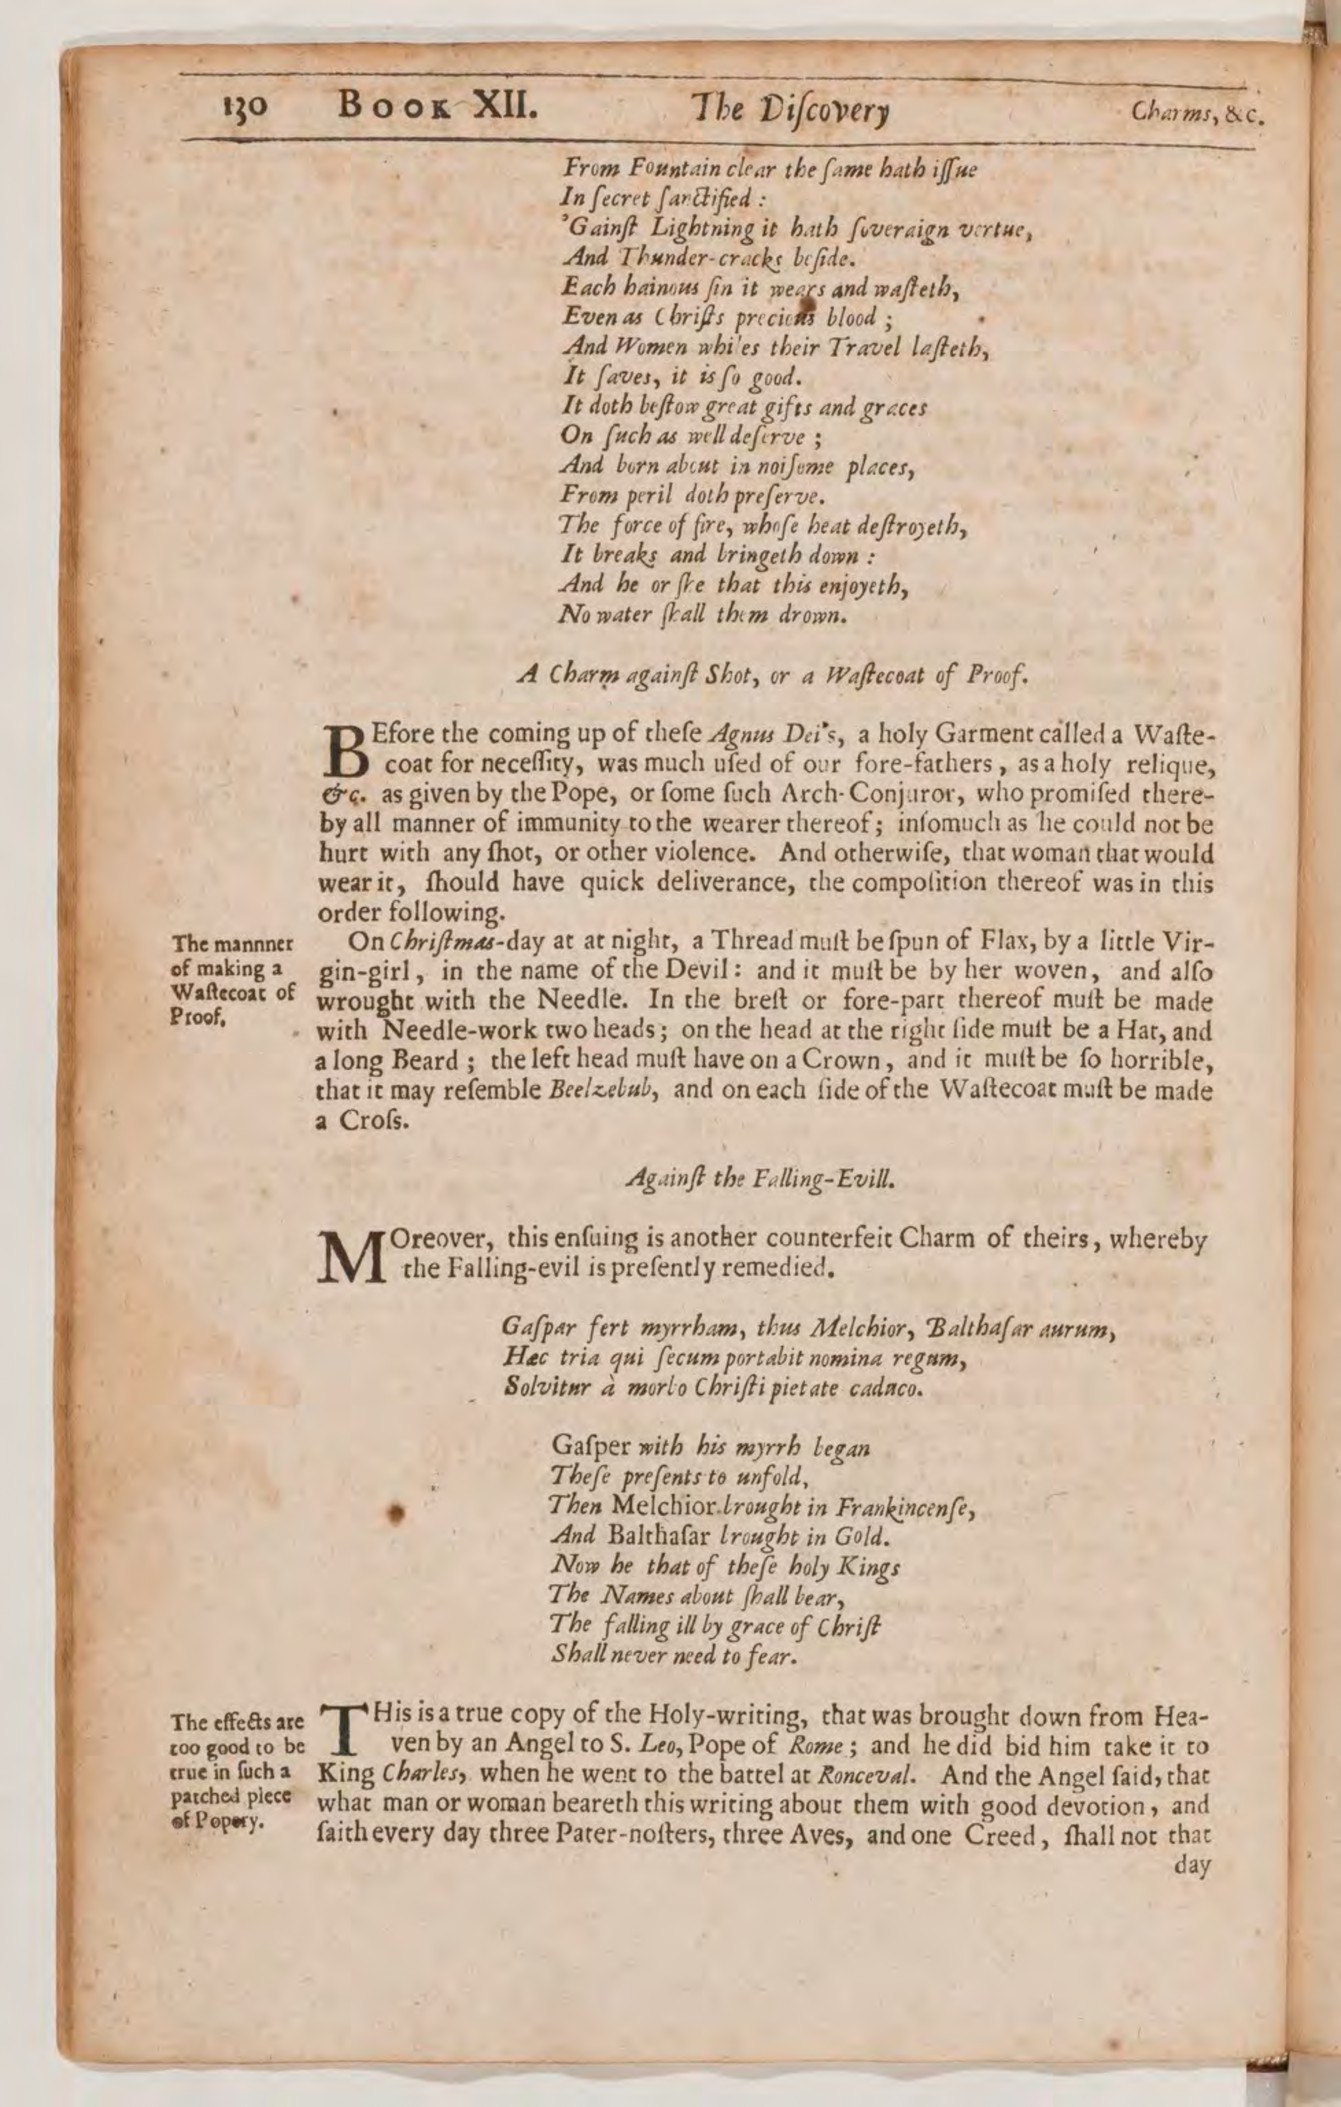 130 BOOK XII. The Diſcovery Charms, &c.
From Fountain clear the ſame hath iſſue
In ſecret ſanctified :
'Gainſt Lightning it hath ſoveraign vertue,
And Thunder-cracks beſide.
Each hainous ſin it wears and waſteth,
Even as Chriſts precious blood ;
And Women whiles their Travel laſteth,
It ſaves, it is ſo good.
It doth beſtow great gifts and graces
On ſuch as well deſerve ;
And born about in noiſome places,
From peril doth preſerve.
The force of fire, whoſe heat deſtroyeth,
It breaks and bringeth down :
And he or ſhe that this enjoyeth,
No water ſhall them drown.
A Charm againſt Shot, or a Waſtecoat of Proof.
BEfore the coming up of theſe Agnus Dei's, a holy Garment called a Waſte-
coat for neceſſity, was much uſed of our fore-fathers, as a holy relique,
&c. as given by the Pope, or ſome ſuch Arch-Conjuror, who promiſed there-
by all manner of immunity to the wearer thereof; inſomuch as he could not be
hurt with any ſhot, or other violence. And otherwiſe, that woman that would
wear it, ſhould have quick deliverance, the compoſition thereof was in this
order following.
The mannner
of making a
Waſtecoat of
Proof.
On Chriſtmas-day at at night, a Thread muſt be ſpun of Flax, by a little Vir-
gin-girl, in the name of the Devil: and it muſt be by her woven, and alſo
wrought with the Needle. In the breſt or fore-part thereof muſt be made
with Needle-work two heads; on the head at the right ſide muſt be a Hat, and
a long Beard ; the left head muſt have on a Crown, and it muſt be ſo horrible,
that it may reſemble Beelzebub, and on each ſide of the Waſtecoat muſt be made
a Croſs.
Againſt the Falling-Evill.
MOreover, this enſuing is another counterfeit Charm of theirs, whereby
the Falling-evil is preſently remedied.
Gaſpar fert myrrham, thus Melchior, Balthaſar aurum,
Hæc tria qui ſecum portabit nomina regum,
Solvitur à morbo Chriſti pietate caduco.
Gaſper with his myrrh began
Theſe preſents to unfold,
Then Melchior brought in Frankincenſe,
And Balthaſar brought in Gold.
Now he that of theſe holy Kings
The Names about ſhall bear,
The falling ill by grace of Chriſt
Shall never need to fear.
The effects are
too good to be
true in ſuch a
patched piece
of Popery.
THis is a true copy of the Holy-writing, that was brought down from Hea-
ven by an Angel to S. Leo, Pope of Rome ; and he did bid him take it to
King Charles, when he went to the battel at Ronceval. And the Angel ſaid, that
what man or woman beareth this writing about them with good devotion, and
ſaith every day three Pater-noſters, three Aves, and one Creed, ſhall not that
day